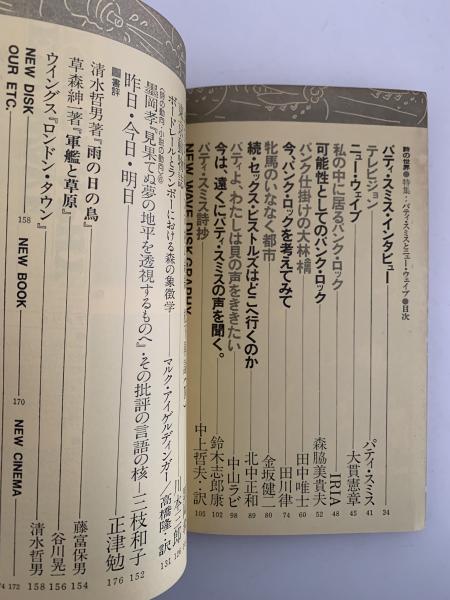 詩の世界●特集・パティ・スミスとニュー・ウェイブ●目次
パティ・スミス・インタビュー パティ・スミス 34
テレビジョン 大貫憲章 41
ニュー・ウェイブ IRIA 48
私の中に居るパンク・ロック 森脇美貴夫 52
可能性としてのパンク・ロック 田中唯士 60
パンク仕掛けの大林構 田川律 74
今、パンク・ロックを考えてみて 金坂健二 80
牝馬のいななく都市 北中正和 89
続・セックス・ピストルズはどこへ行くのか 中山ラビ 98
パティよ、わたしは貝の声をききたい 鈴木志郎康 102
今は、遠くにパティ・スミスの声を聞く。 中上哲夫・訳 105
パティ・スミス詩抄
NEW WAVE DISK GRAPHY
ボードレールとランボーにおける森の象徴学 マルク・アイゲルディンガー 高橋隆・訳 131
〈詩の動向・小説の動向〉⑥
黒岡孝『見果てぬ夢の地平を透視するものへ』・その批評の言語の核 三枝和子 152
昨日・今日・明日 正津勉 176
書評
清水哲男著『雨の日の鳥』 藤富保男 154
草森紳一著『軍艦と草原』 谷川晃一 156
ウイングス『ロンドン・タウン』 清水哲男 158
NEW DISK 158 NEW BOOK 170 NEW CINEMA 172
OUR ETC. 174